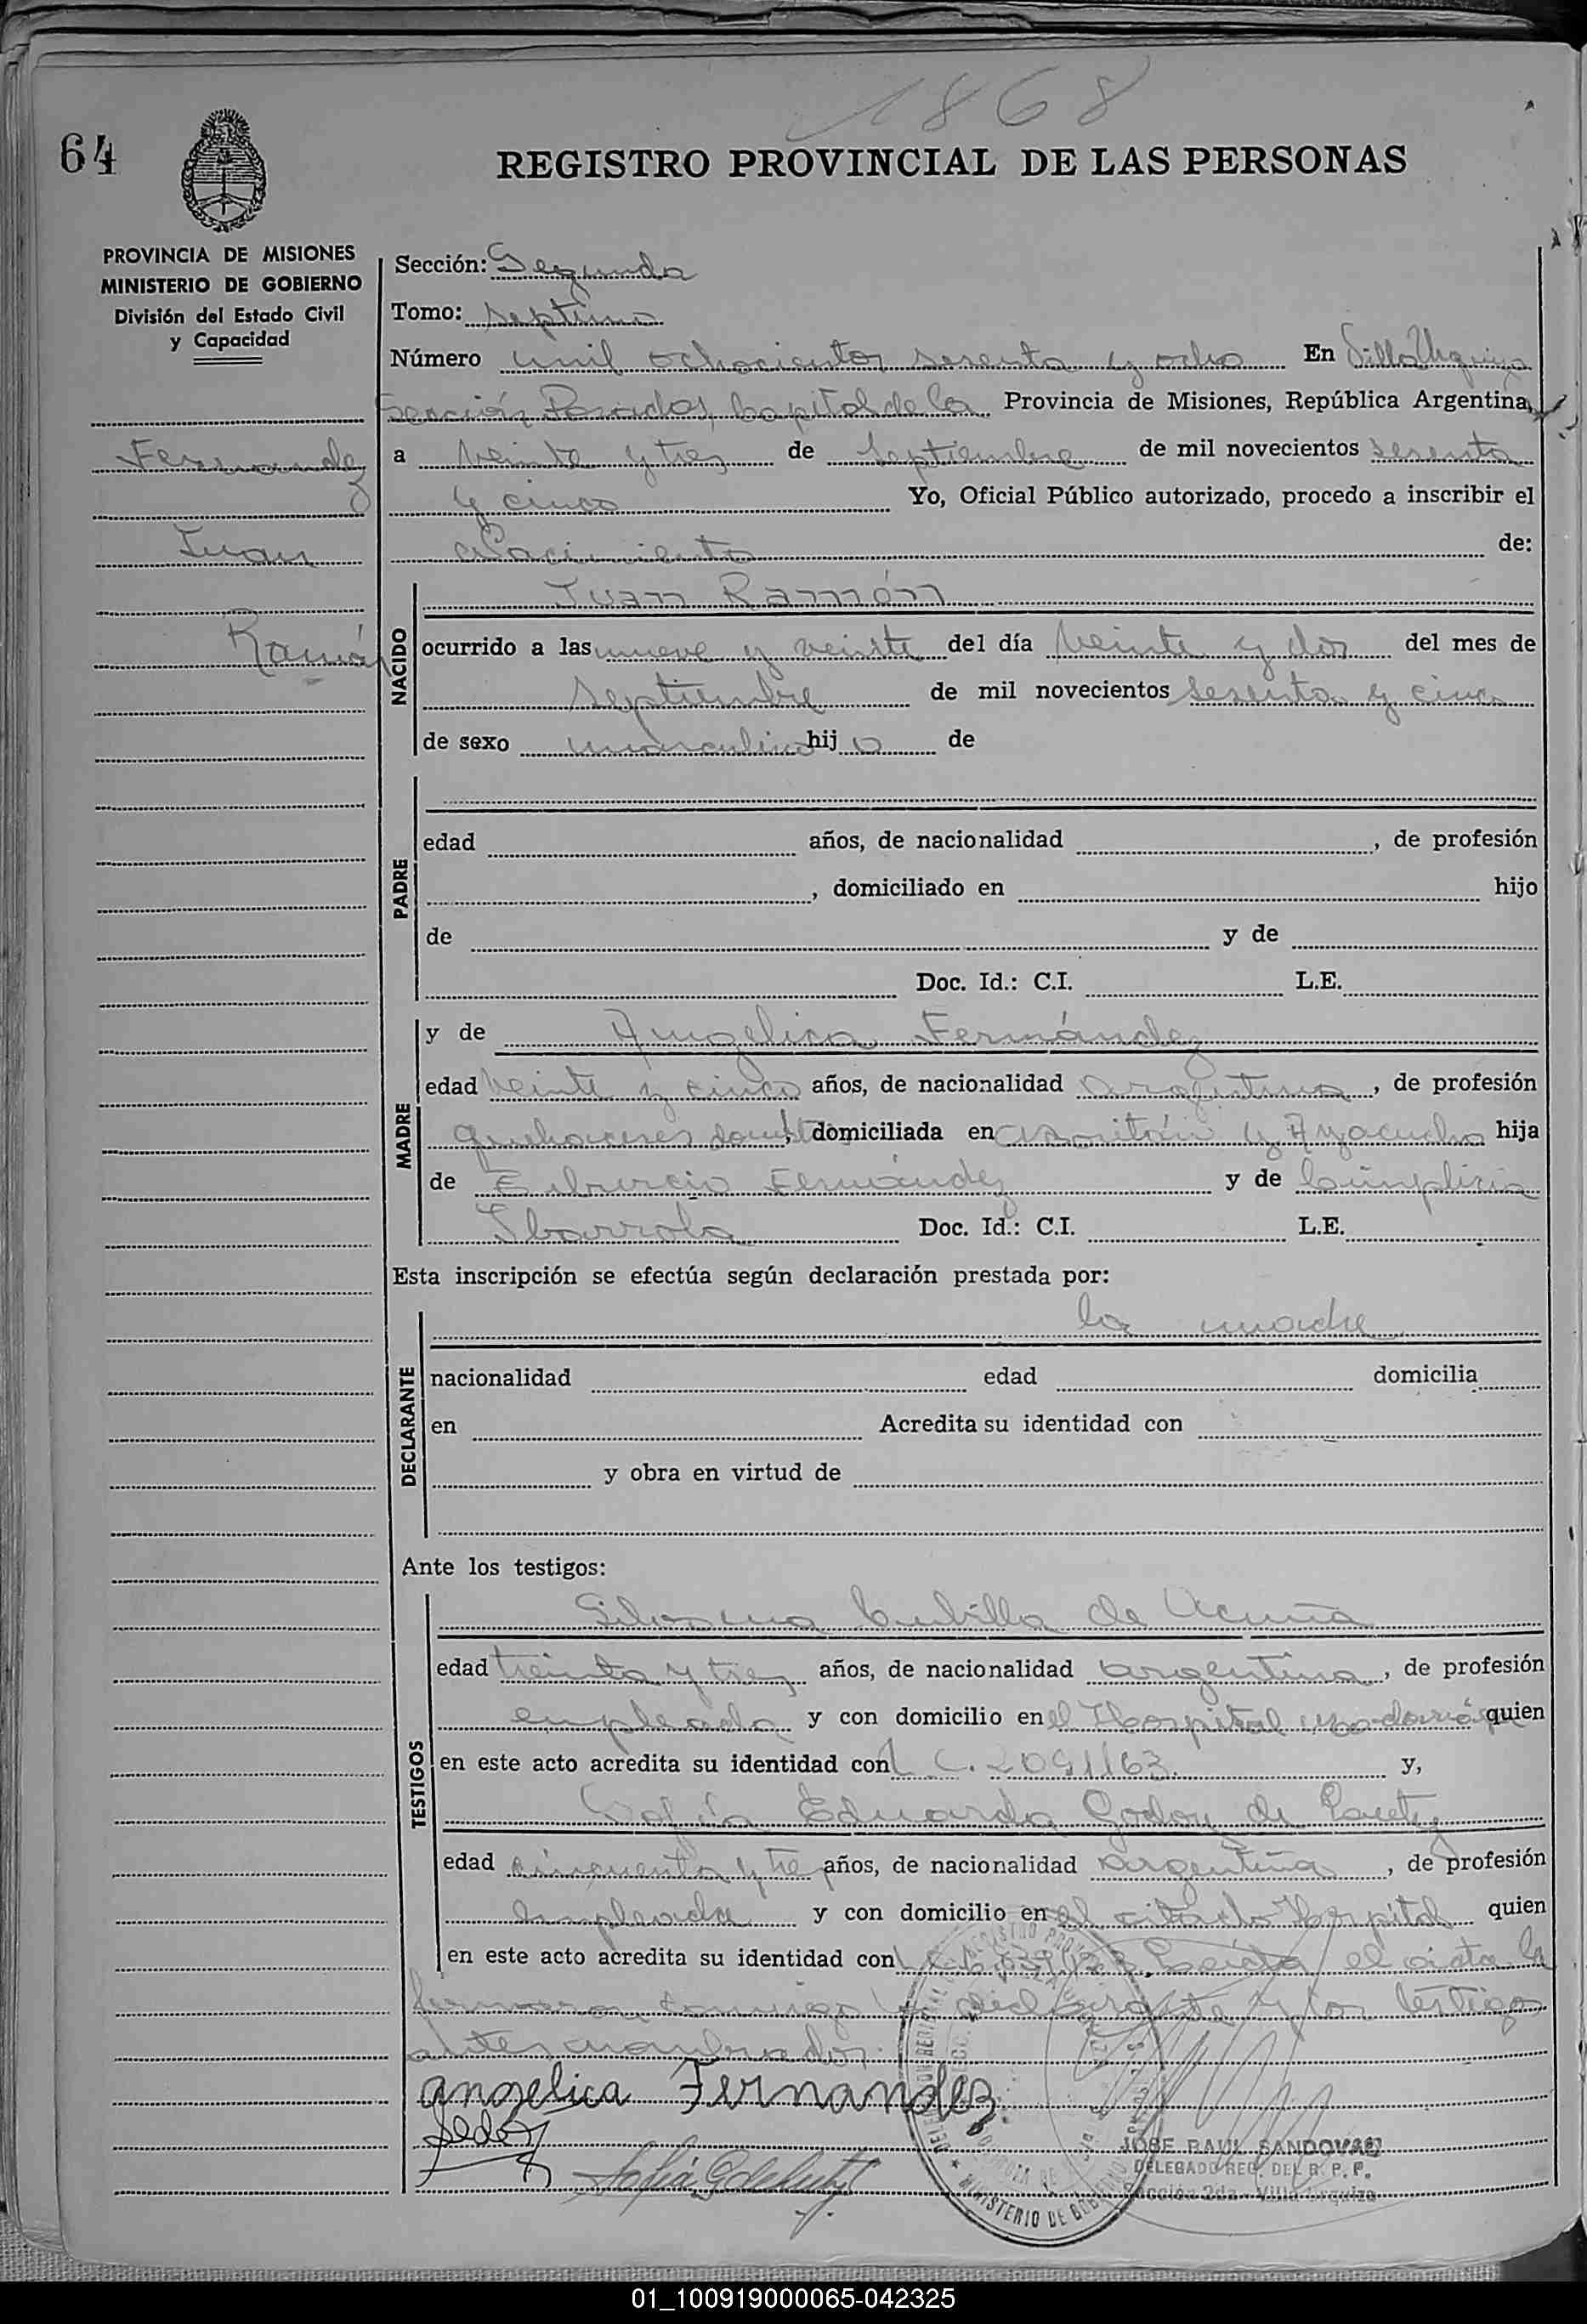 1868
64
REGISTRO PROVINCIAL DE LAS PERSONAS
PROVINCIA DE MISIONES
MINISTERIO DE GOBIERNO
División del Estado Civil
y Capacidad
Fernandez
Juan
Ramón
Sección: Segunda
Tomo: septimo
Número mil ochocientos sesenta y ocho En Villa Urquiza
sección Posadas, Capital de la Provincia de Misiones, República Argentina,
a veinte y tres de septiembre de mil novecientos sesenta
y cinco Yo, Oficial Público autorizado, procedo a inscribir el
Nacimiento de:
NACIDO
Juan Ramón
ocurrido a las nueve y veinte del día veinte y dos del mes de
septiembre de mil novecientos sesenta y cinco
de sexo masculino hijo de
PADRE
edad años, de nacionalidad , de profesión
, domiciliado en hijo
de y de
Doc. Id.: C.I. L.E.
MADRE
y de Angelica Fernández
edad veinte y cinco años, de nacionalidad argentina, de profesión
quehaceres domésticos, domiciliada en y Ayacucho hija
de Fernández y de
Ibarrola Doc. Id.: C.I. L.E.
Esta inscripción se efectúa según declaración prestada por:
DECLARANTE
la madre
nacionalidad edad domicilia
en Acredita su identidad con
y obra en virtud de
Ante los testigos:
TESTIGOS
Cubilla de Acuña
edad treinta y tres años, de nacionalidad argentina, de profesión
empleada y con domicilio en el Hospital quien
en este acto acredita su identidad con L C. 2091163. y,
Eduarda Godoy de
edad cincuenta y tres años, de nacionalidad argentina, de profesión
empleada y con domicilio en el citado Hospital quien
en este acto acredita su identidad con Leída el acta la
firmaron conmigo la declarante y los testigos
antes nombrados.
angelica Fernandez
JOSE RAUL SANDOVAL
DELEGADO REG. DEL R. P. P.
Sección 2da - Villa Urquiza
MINISTERIO DE GOBIERNO
01_100919000065-042325